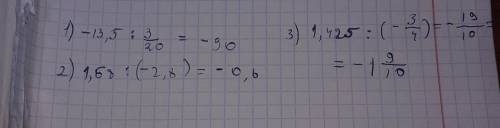 1) -13,5 : 3/20 = -90
2) 1,68 : (-2,8) = -0,6
3) 1,425 : (-3/4) = -19/10 =
= -1 9/10